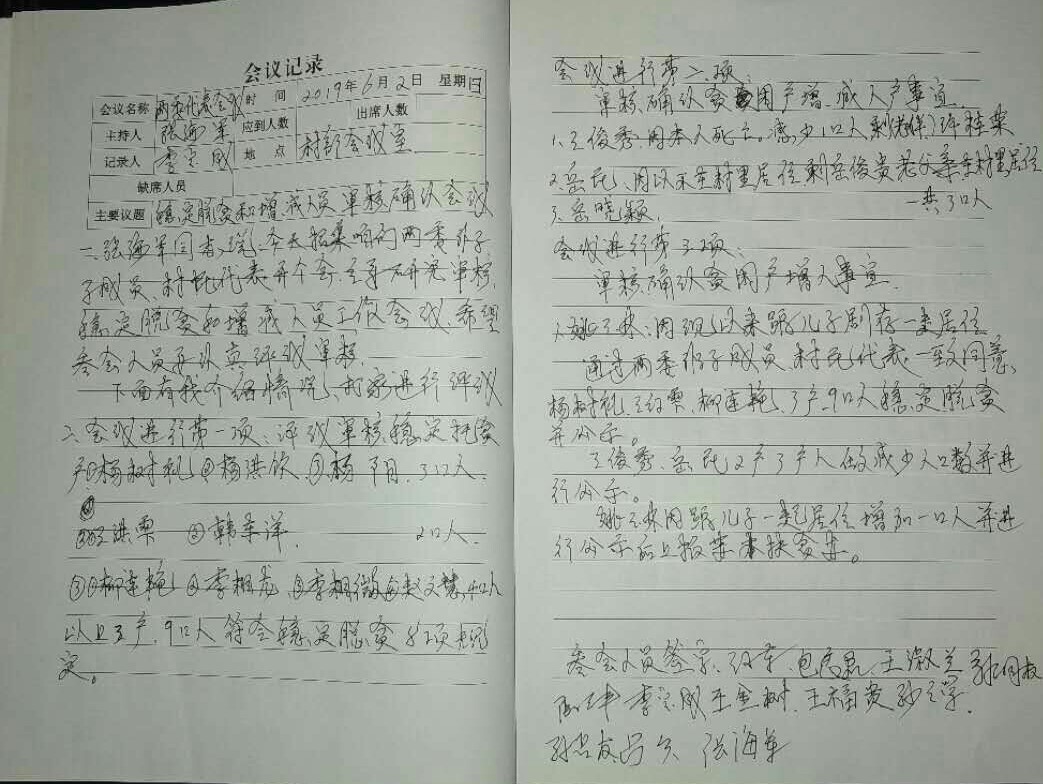 会议记录
会议名称 两委代表会议 时间 2019年6月2日 星期日
主持人 张海军 应到人数 出席人数
记录人 李宝成 地点 村部会议室
缺席人员
主要议题 稳定脱贫和增减人员审核确认会议
一、张海军同志说:今天招集咱们两委班子
子成员、村民代表开个会,主要研究审核
稳定脱贫和增减人员工作会议,希望
参会人员要认真评议审核.
下面有我介绍情况,大家进行评议
二、会议进行第一项、评议审核稳定托贫
户①杨树礼②杨洪钦③杨阳、3口人
洪栗 ②韩洋. 2口人.
③①柳连艳②李相龙③李相微④赵文慧4口人
以上3户,9口人符合稳定脱贫各项规
定。
会议进行第二项、
审核确认贫困户增减人户事宜.
1、王俊秀,因本人死亡。减少1口人
2、岳民、因以不在村里居住剩岳俊贵老父亲在村里居住
3、岳晓颖. 一共3口人
会议进行第三项:
审核确认贫困户增人事宜.
1、姚玉林:因现以来跟儿子一起居住
通过两委班子成员、村民代表一致同意、
杨树礼、王红栗、柳连艳、3户、9口人稳定脱贫
并公示。
王俊秀、岳民2户3户人做减少人口数并进
行公示。
姚玉林因跟儿子一起居住增加一口人并进
行公示后上报扶贫办。
参会人员签字: 王淑兰
李宝成 王金树 王福贵
张海军